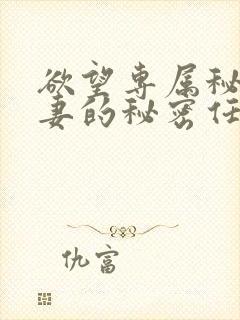 欲望专属秘
妻的秘密任
仇富